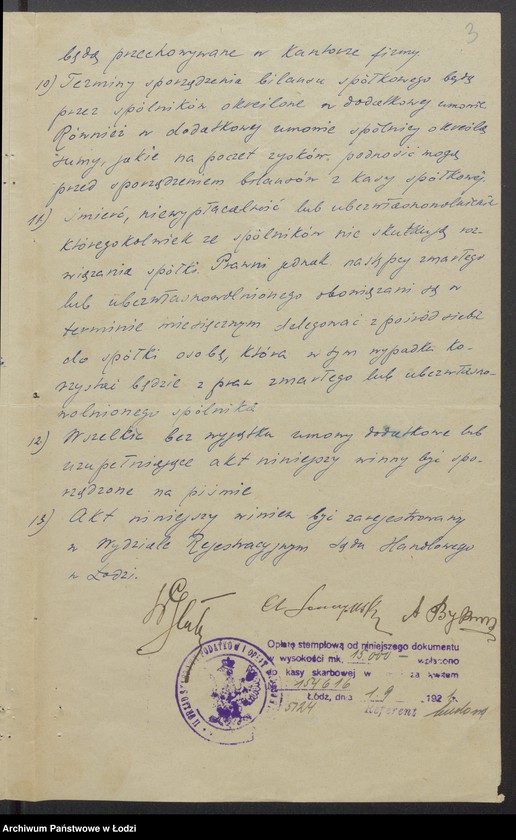 3
będą przechowywane w kantorze firmy
10) Terminy sporządzenia bilansu spółkowego będą
przez spólników określone w dodatkowej umowie
Również w dodatkowej umowie spólnicy określą
sumy, jakie na poczet zysków podnosić mogą
przed sporządzeniem bilansów z kasy spółkowej.
11) Śmierć, niewypłacalność lub ubezwłasnowolnienie
któregokolwiek ze spólników nie skutkują roz-
wiązania spółki. Prawni jednak następcy zmarłego
lub ubezwłasnowolnionego obowiązani są w
terminie miesięcznym delegować z pośród siebie
do spółki osobę, która w tym wypadku ko-
rzystać będzie z praw zmarłego lub ubezwłasno-
wolnionego spólnika
12) Wszelkie bez wyjątku umowy dodatkowe lub
uzupełniające akt niniejszy winny być spo-
rządzone na piśmie
13) Akt niniejszy winien być zarejestrowany
w Wydziale Rejestracyjnym Sądu Handlowego
w Łodzi.
Opłatę stemplową od niniejszego dokumentu
w wysokości mk. 15.000 — wpłacono
do kasy skarbowej w za kwitem
154616
Łódź, dnia 1.9 192 r.
Referent
Archiwum Państwowe w Łodzi